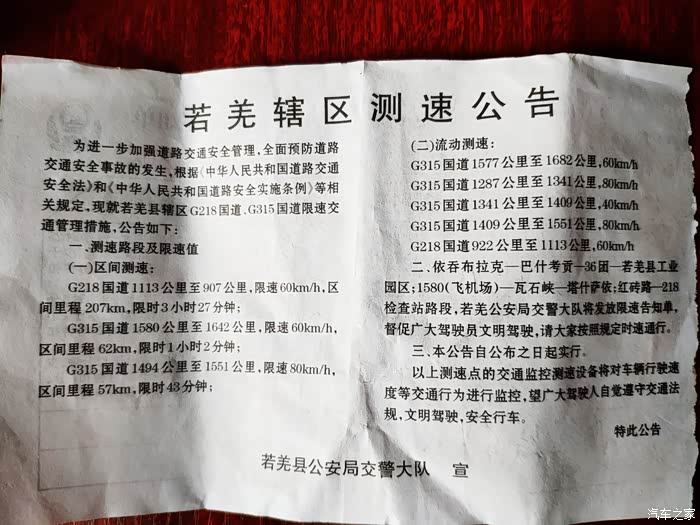 若羌辖区测速公告
为进一步加强道路交通安全管理,全面预防道路
交通安全事故的发生,根据《中华人民共和国道路交通
安全法》和《中华人民共和国道路安全实施条例》等相
关规定,现就若羌县辖区G218国道、G315国道限速交
通管理措施,公告如下:
一、测速路段及限速值
(一)区间测速:
G218国道1113公里至907公里,限速60km/h,区
间里程207km,限时3小时27分钟;
G315国道1580公里至1642公里,限速60km/h,
区间里程62km,限时1小时2分钟;
G315国道1494公里至1551公里,限速80km/h,
区间里程57km,限时43分钟;
(二)流动测速:
G315国道1577公里至1682公里,60km/h
G315国道1287公里至1341公里,80km/h
G315国道1341公里至1409公里,40km/h
G315国道1409公里至1551公里,80km/h
G218国道922公里至1113公里,60km/h
二、依吞布拉克—巴什考贡—36团—若羌县工业
园区;1580(飞机场)—瓦石峡—塔什萨依;红砖路—218
检查站路段,若羌公安局交警大队将发放限速告知单,
督促广大驾驶员文明驾驶,请大家按照规定时速通行。
三、本公告自公布之日起实行。
以上测速点的交通监控测速设备将对车辆行驶速
度等交通行为进行监控,望广大驾驶人自觉遵守交通法
规,文明驾驶,安全行车。
特此公告
若羌县公安局交警大队 宣
汽车之家